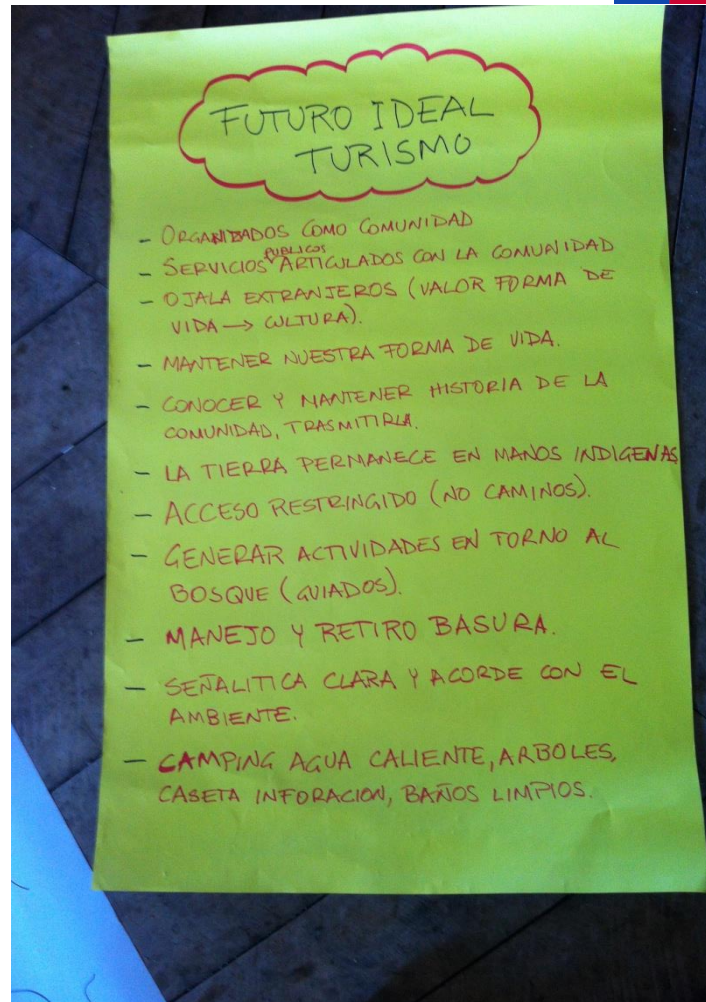 FUTURO IDEAL
TURISMO
- ORGANIZADOS COMO COMUNIDAD
- SERVICIOS PUBLICOS ARTICULADOS CON LA COMUNIDAD
- OJALA EXTRANJEROS (VALOR FORMA DE
VIDA → CULTURA).
- MANTENER NUESTRA FORMA DE VIDA.
- CONOCER Y MANTENER HISTORIA DE LA
COMUNIDAD, TRASMITIRLA.
- LA TIERRA PERMANECE EN MANOS INDIGENAS
- ACCESO RESTRINGIDO (NO CAMINOS).
- GENERAR ACTIVIDADES EN TORNO AL
BOSQUE (GUIADOS).
- MANEJO Y RETIRO BASURA.
- SEÑALITICA CLARA Y ACORDE CON EL
AMBIENTE.
- CAMPING AGUA CALIENTE, ARBOLES,
CASETA INFORACION, BAÑOS LIMPIOS.